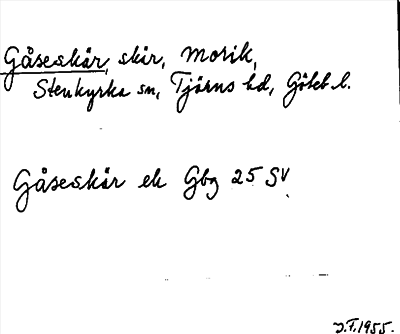 Gåseskär, skär, Morik,
Stenkyrka sn, Tjörns hd, Göteb. l.
Gåseskär ek Gbg 25 SV
J.F. 1955.